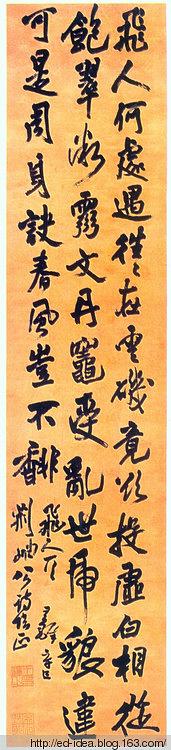 飛人何處遇往〻在雲磯竟以投虛白相從
飽翠微露文丹竈變亂世虎貌違
可是周身訣春風豈不
飛人下
荆岫公詩
正
http://ed-idea.blog.163.com/